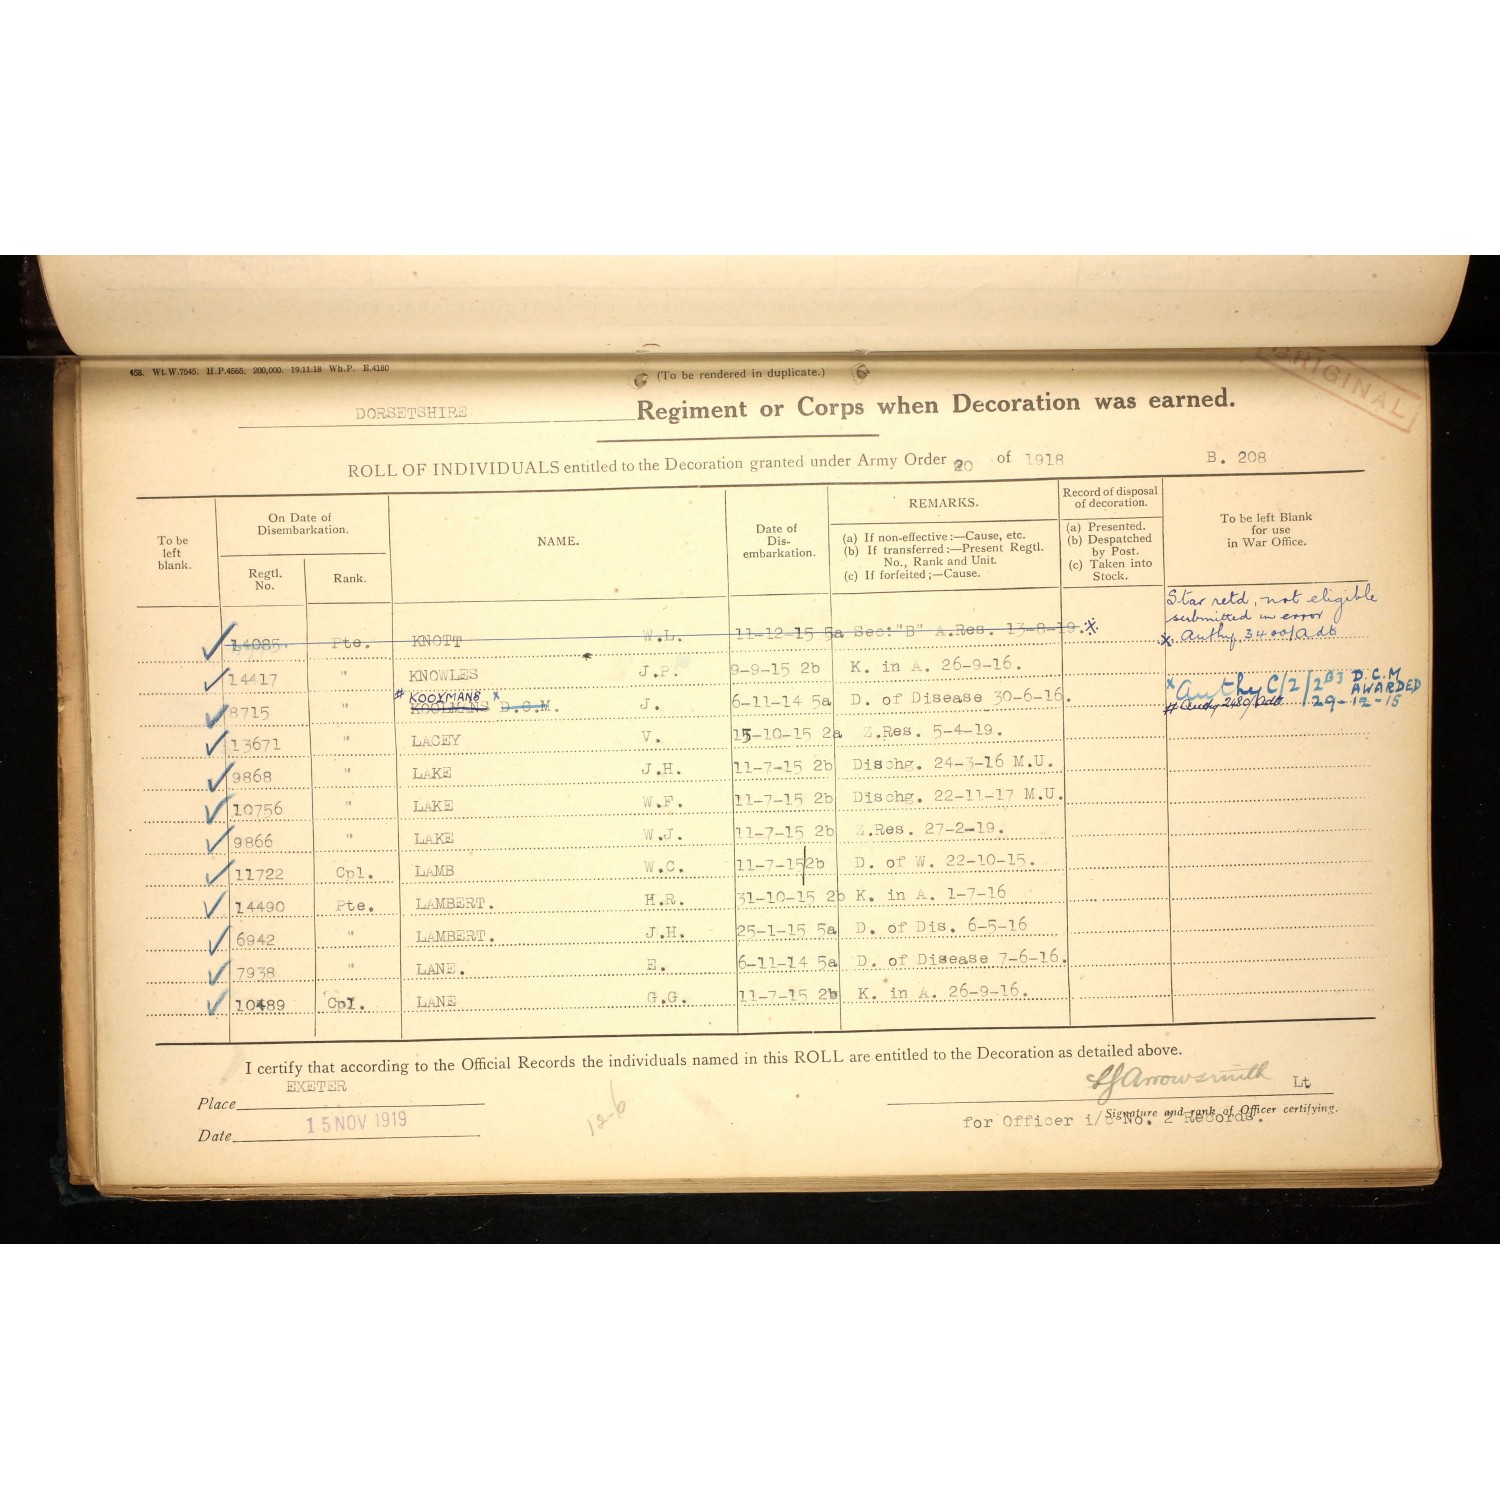 458. Wt.W.7545. H.P.4565. 200,000. 19.11.18 Wh.P. E.4180
(To be rendered in duplicate.)
ORIGINAL
DORSETSHIRE Regiment or Corps when Decoration was earned.
ROLL OF INDIVIDUALS entitled to the Decoration granted under Army Order 20 of 1918 B. 208
To be left blank. On Date of Disembarkation. Regtl. No. Rank. NAME. Date of Dis-embarkation. REMARKS. (a) If non-effective:—Cause, etc. (b) If transferred:—Present Regtl. No., Rank and Unit. (c) If forfeited;—Cause. Record of disposal of decoration. (a) Presented. (b) Despatched by Post. (c) Taken into Stock. To be left Blank for use in War Office.
Star retd, not eligible
submitted in error
14085. Pte. KNOTT W.L. 11-12-15 5a Sec:"B" A.Res. 13-8-19. x. Authy, 3400/Adt
14417 " KNOWLES J.P. 9-9-15 2b K. in A. 26-9-16.
# KOOYMANS x
8715 " KOOLMANS D.C.M. J. 6-11-14 5a D. of Disease 30-6-16. x Authy C/2/2B3 D.C.M AWARDED 29-12-15
# Authy 2480/Adt
13671 " LACEY V. 15-10-15 2a Z.Res. 5-4-19.
9868 " LAKE J.H. 11-7-15 2b Dischg. 24-3-16 M.U.
10756 " LAKE W.F. 11-7-15 2b Dischg. 22-11-17 M.U.
9866 " LAKE W.J. 11-7-15 2b Z.Res. 27-2-19.
11722 Cpl. LAMB W.C. 11-7-15 2b D. of W. 22-10-15.
14490 Pte. LAMBERT. H.R. 31-10-15 2b K. in A. 1-7-16
6942 " LAMBERT. J.H. 25-1-15 5a D. of Dis. 6-5-16
7938 " LANE. E. 6-11-14 5a D. of Disease 7-6-16.
10489 Cpl. LANE G.G. 11-7-15 2b K. in A. 26-9-16.
I certify that according to the Official Records the individuals named in this ROLL are entitled to the Decoration as detailed above.
Place EXETER
Arrowsmith Lt
Signature and rank of Officer certifying.
for Officer i/c No. 2 Records.
Date 15 NOV 1919
12-6